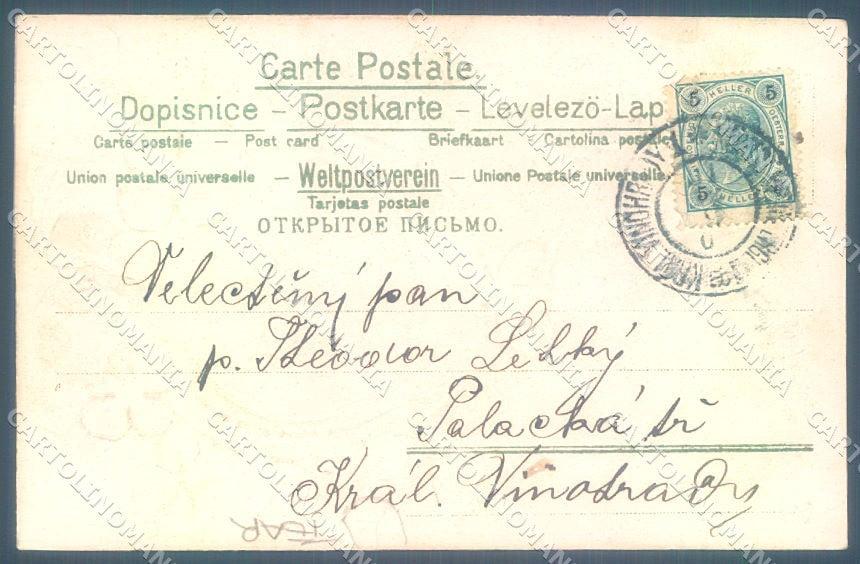 Carte Postale.
Dopisnice – Postkarte – Levelező-Lap
Carte postale – Post card Briefkaart Cartolina postale
Union postale universelle – Weltpostverein – Unione Postale universelle
Tarjetas postale
ОТКРЫТОЕ ПИСЬМО.
5 HELLER 5
5 HELLER
KRÁL. VINOHRADY 1
Velectěný pan
p. Theodor
Palacká tř
Král. Vinohrady
CARTOLINOMANIA